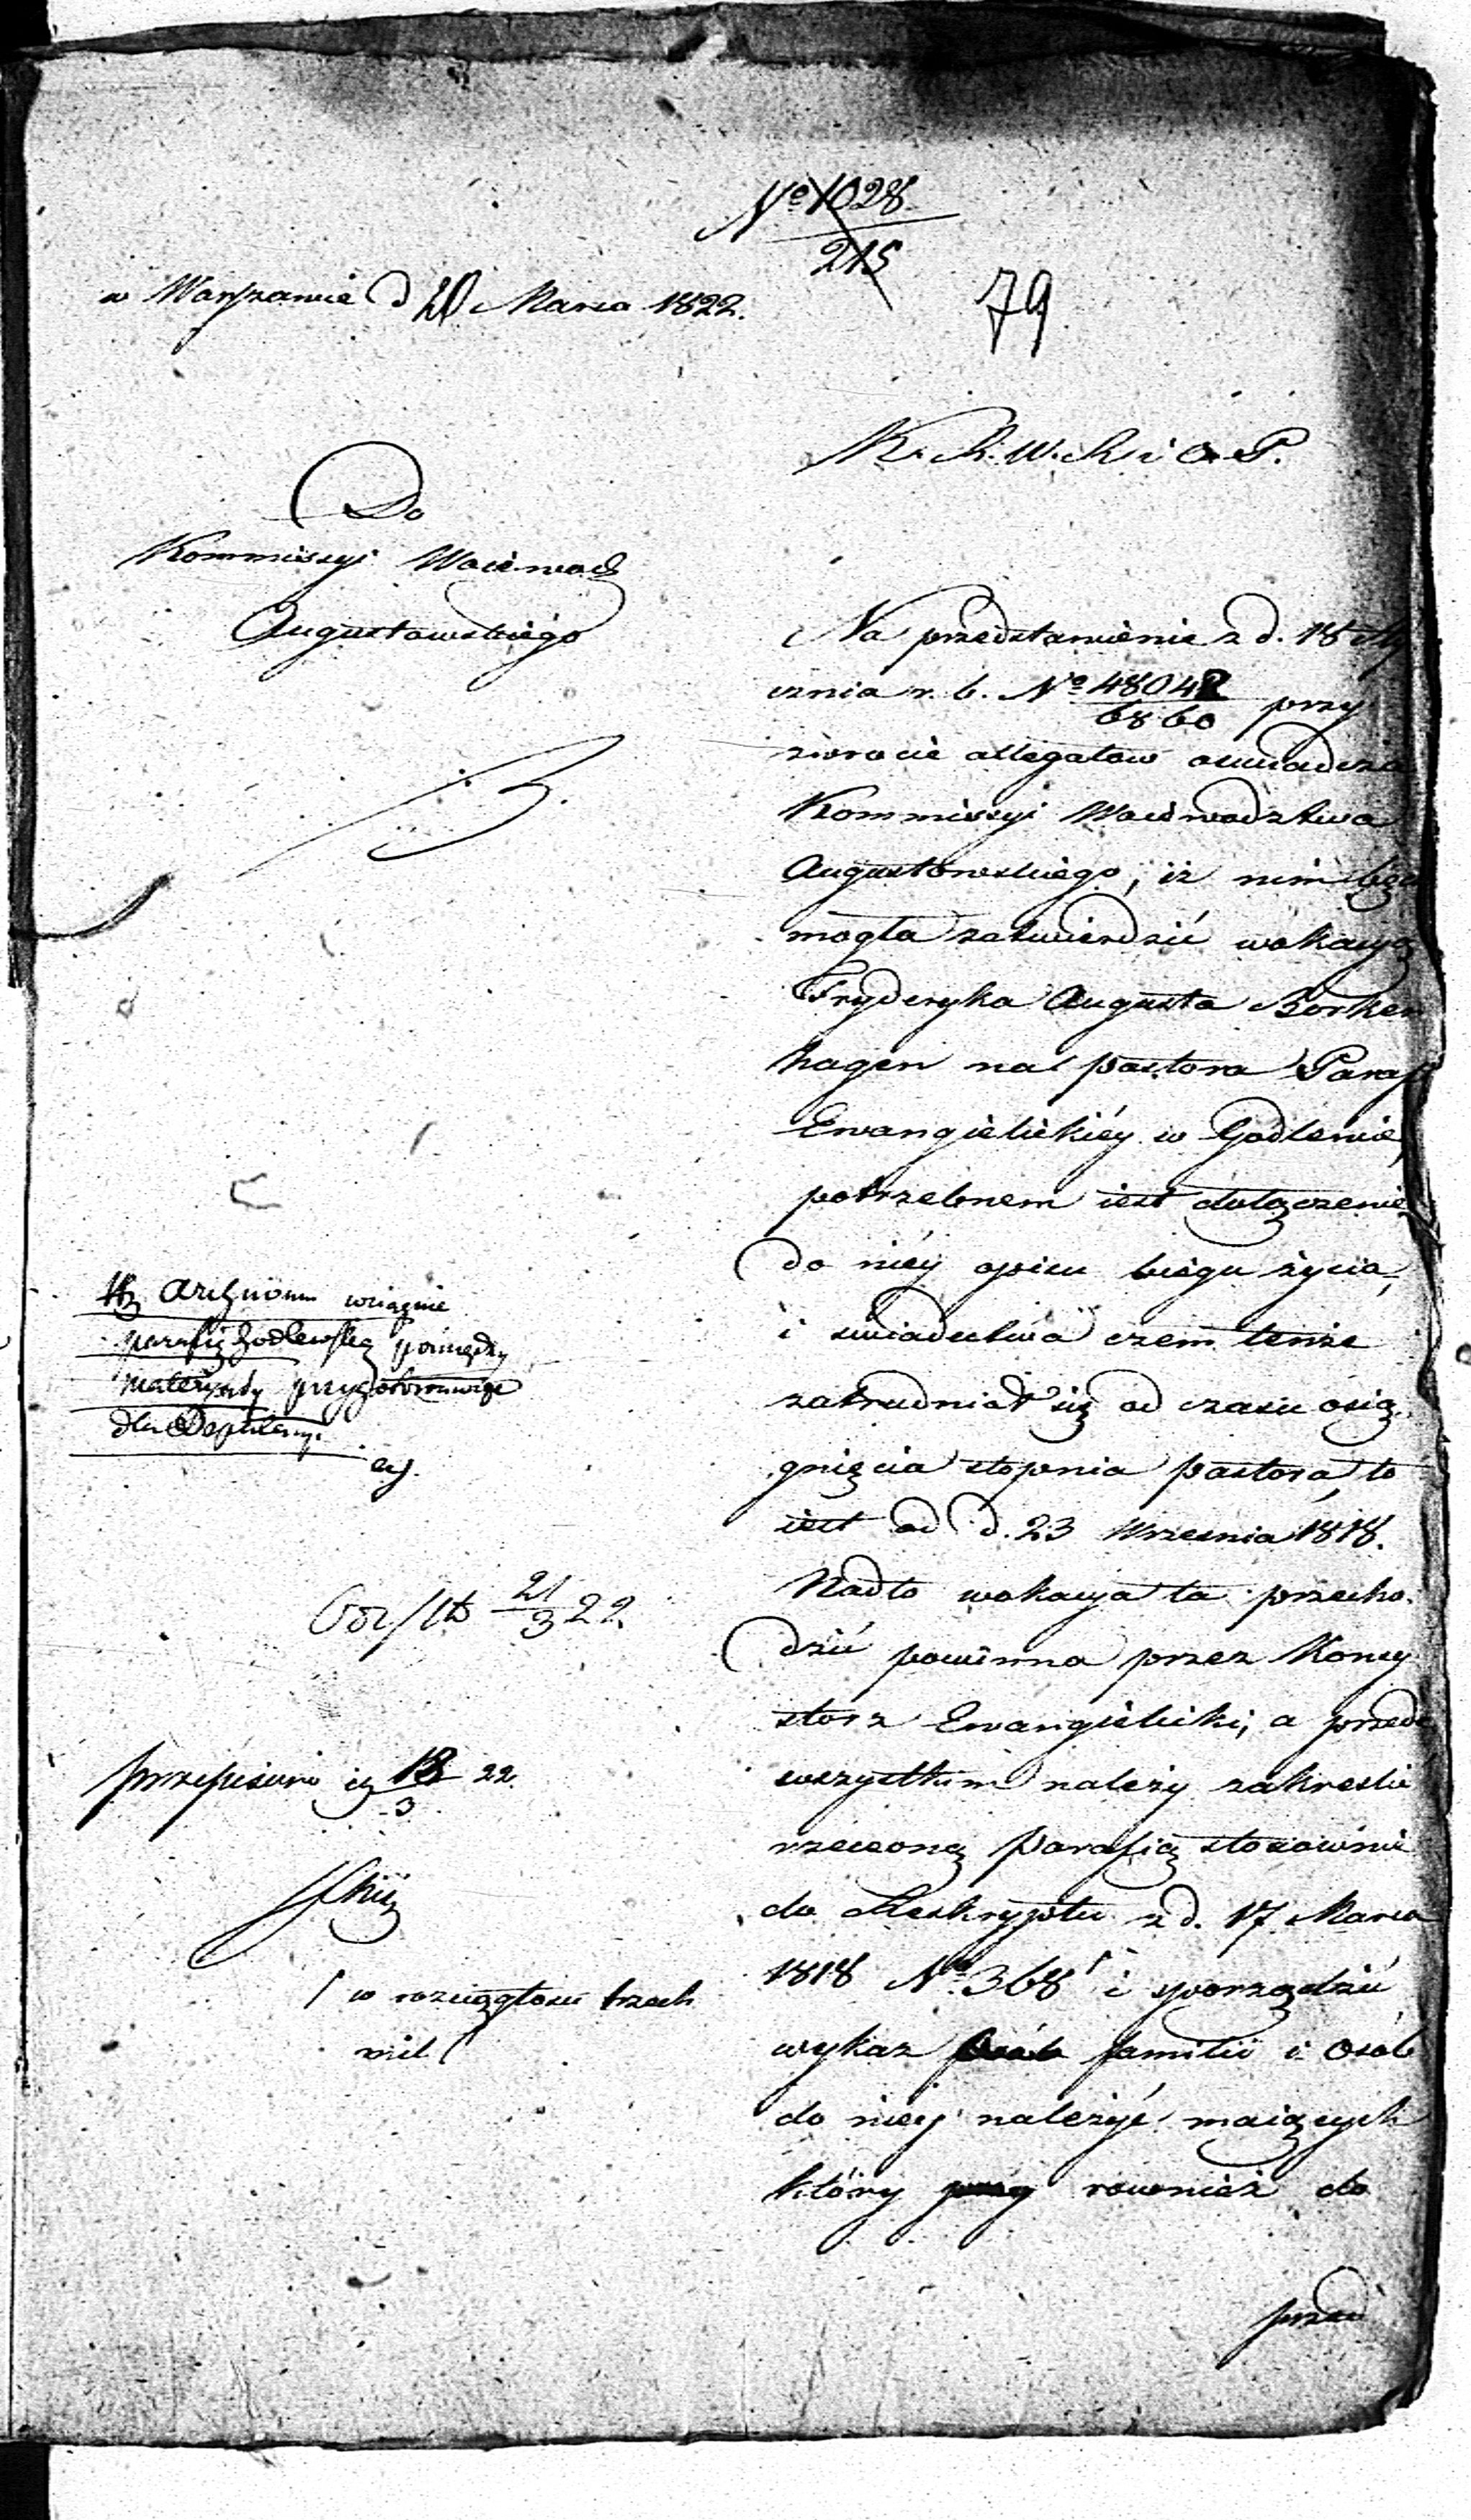 No 1028
215
w Warszawie d 20 Marca 1822.
79
K. R. W. R. i O. P.
Do
Kommissyi Woiewodz
Augustowskiego
Na przedstawienie z d. 18 Sty
cznia r. b. No 48042
6860 przy
zwrocie allegatow oswiadcza
Kommissyi Woiewodztwa
Augustowskiego, iż nim będzie
mogła zatwierdzić wokacyą
Fryderyka Augusta Borken
hagen na pastora Paraf
Ewangielickiéy w Godlewie,
potrzebnem iest dołączenie
do niéy opisu biegu życia,
i swiadectwa czem tenże
zatrudniał się od czasu osią
gnięcia stopnia pastora, to
iest od d. 23 Wrzesnia 1818.
Nadto wokacya ta przecho
dzić powinna przez Konsy
storz Ewangielicki, a przede
wszystkim należy zakreslić
rzeczoną Parafią stosownie
do Reskryptu z d. 17 Marca
1818 No 368 i sporządzić
wykaz familii i osób
do niey należyć maiących
który również do
przed
Archiwum wciągnie
parafię Godlewską pomiędzy
materyały przygotowawcze
dla
21
3 22
przepisano 18 22.
3
w rozciągłosci trzech
mil